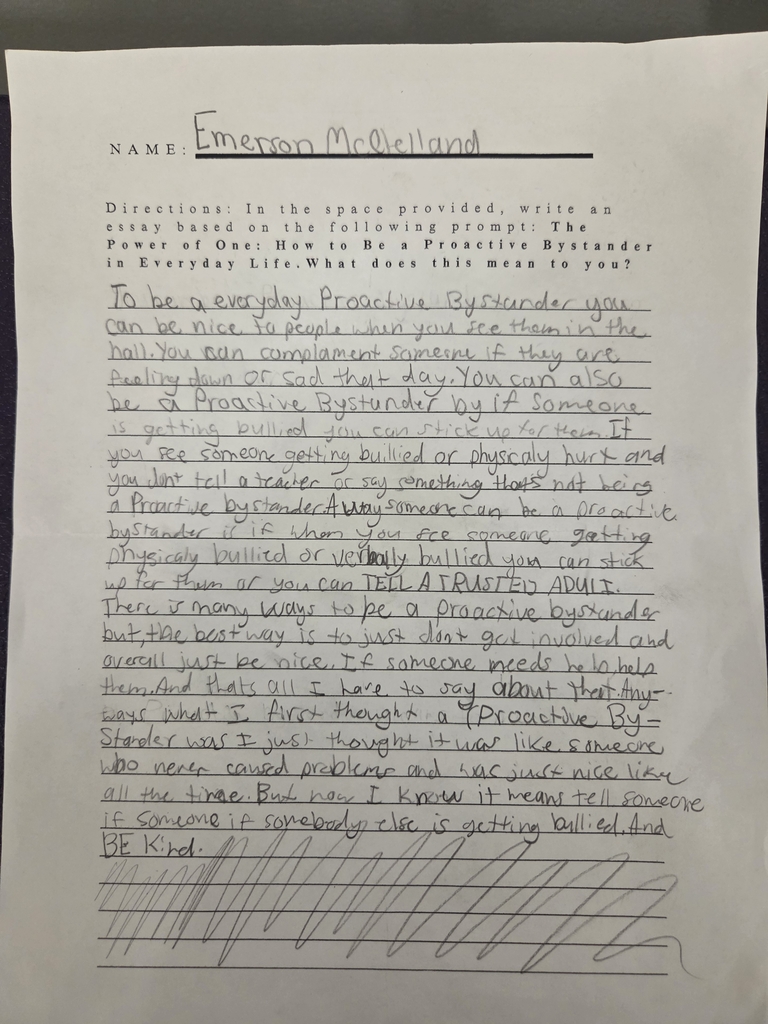 NAME: Emerson McClelland
Directions: In the space provided, write an
essay based on the following prompt: The
Power of One: How to Be a Proactive Bystander
in Everyday Life.What does this mean to you?
To be a everyday Proactive Bystander you
can be nice to people when you see them in the
hall. You can complament someone if they are
feeling down or sad that day. You can also
be a Proactive Bystander by if someone
is getting bullied you can stick up for them. If
you see someone getting bullied or physicaly hurt and
you dont tell a teacher or say something thats not being
a Proactive bystander. A way someone can be a proactive
bystander is if when you see someone getting
physicaly bullied or verbally bullied you can stick
up for them or you can TELL A TRUSTED ADULT.
There is many ways to be a proactive bystander
but, the best way is to just dont get involved and
overall just be nice. If someone needs help, help
them. And thats all I have to say about that. Any-
ways what I first thought a (Proactive By-
Stander was I just thought it was like someone
who never caused problems and was just nice like
all the time. But now I know it means tell someone
if someone if somebody else is getting bullied. And
BE Kind.